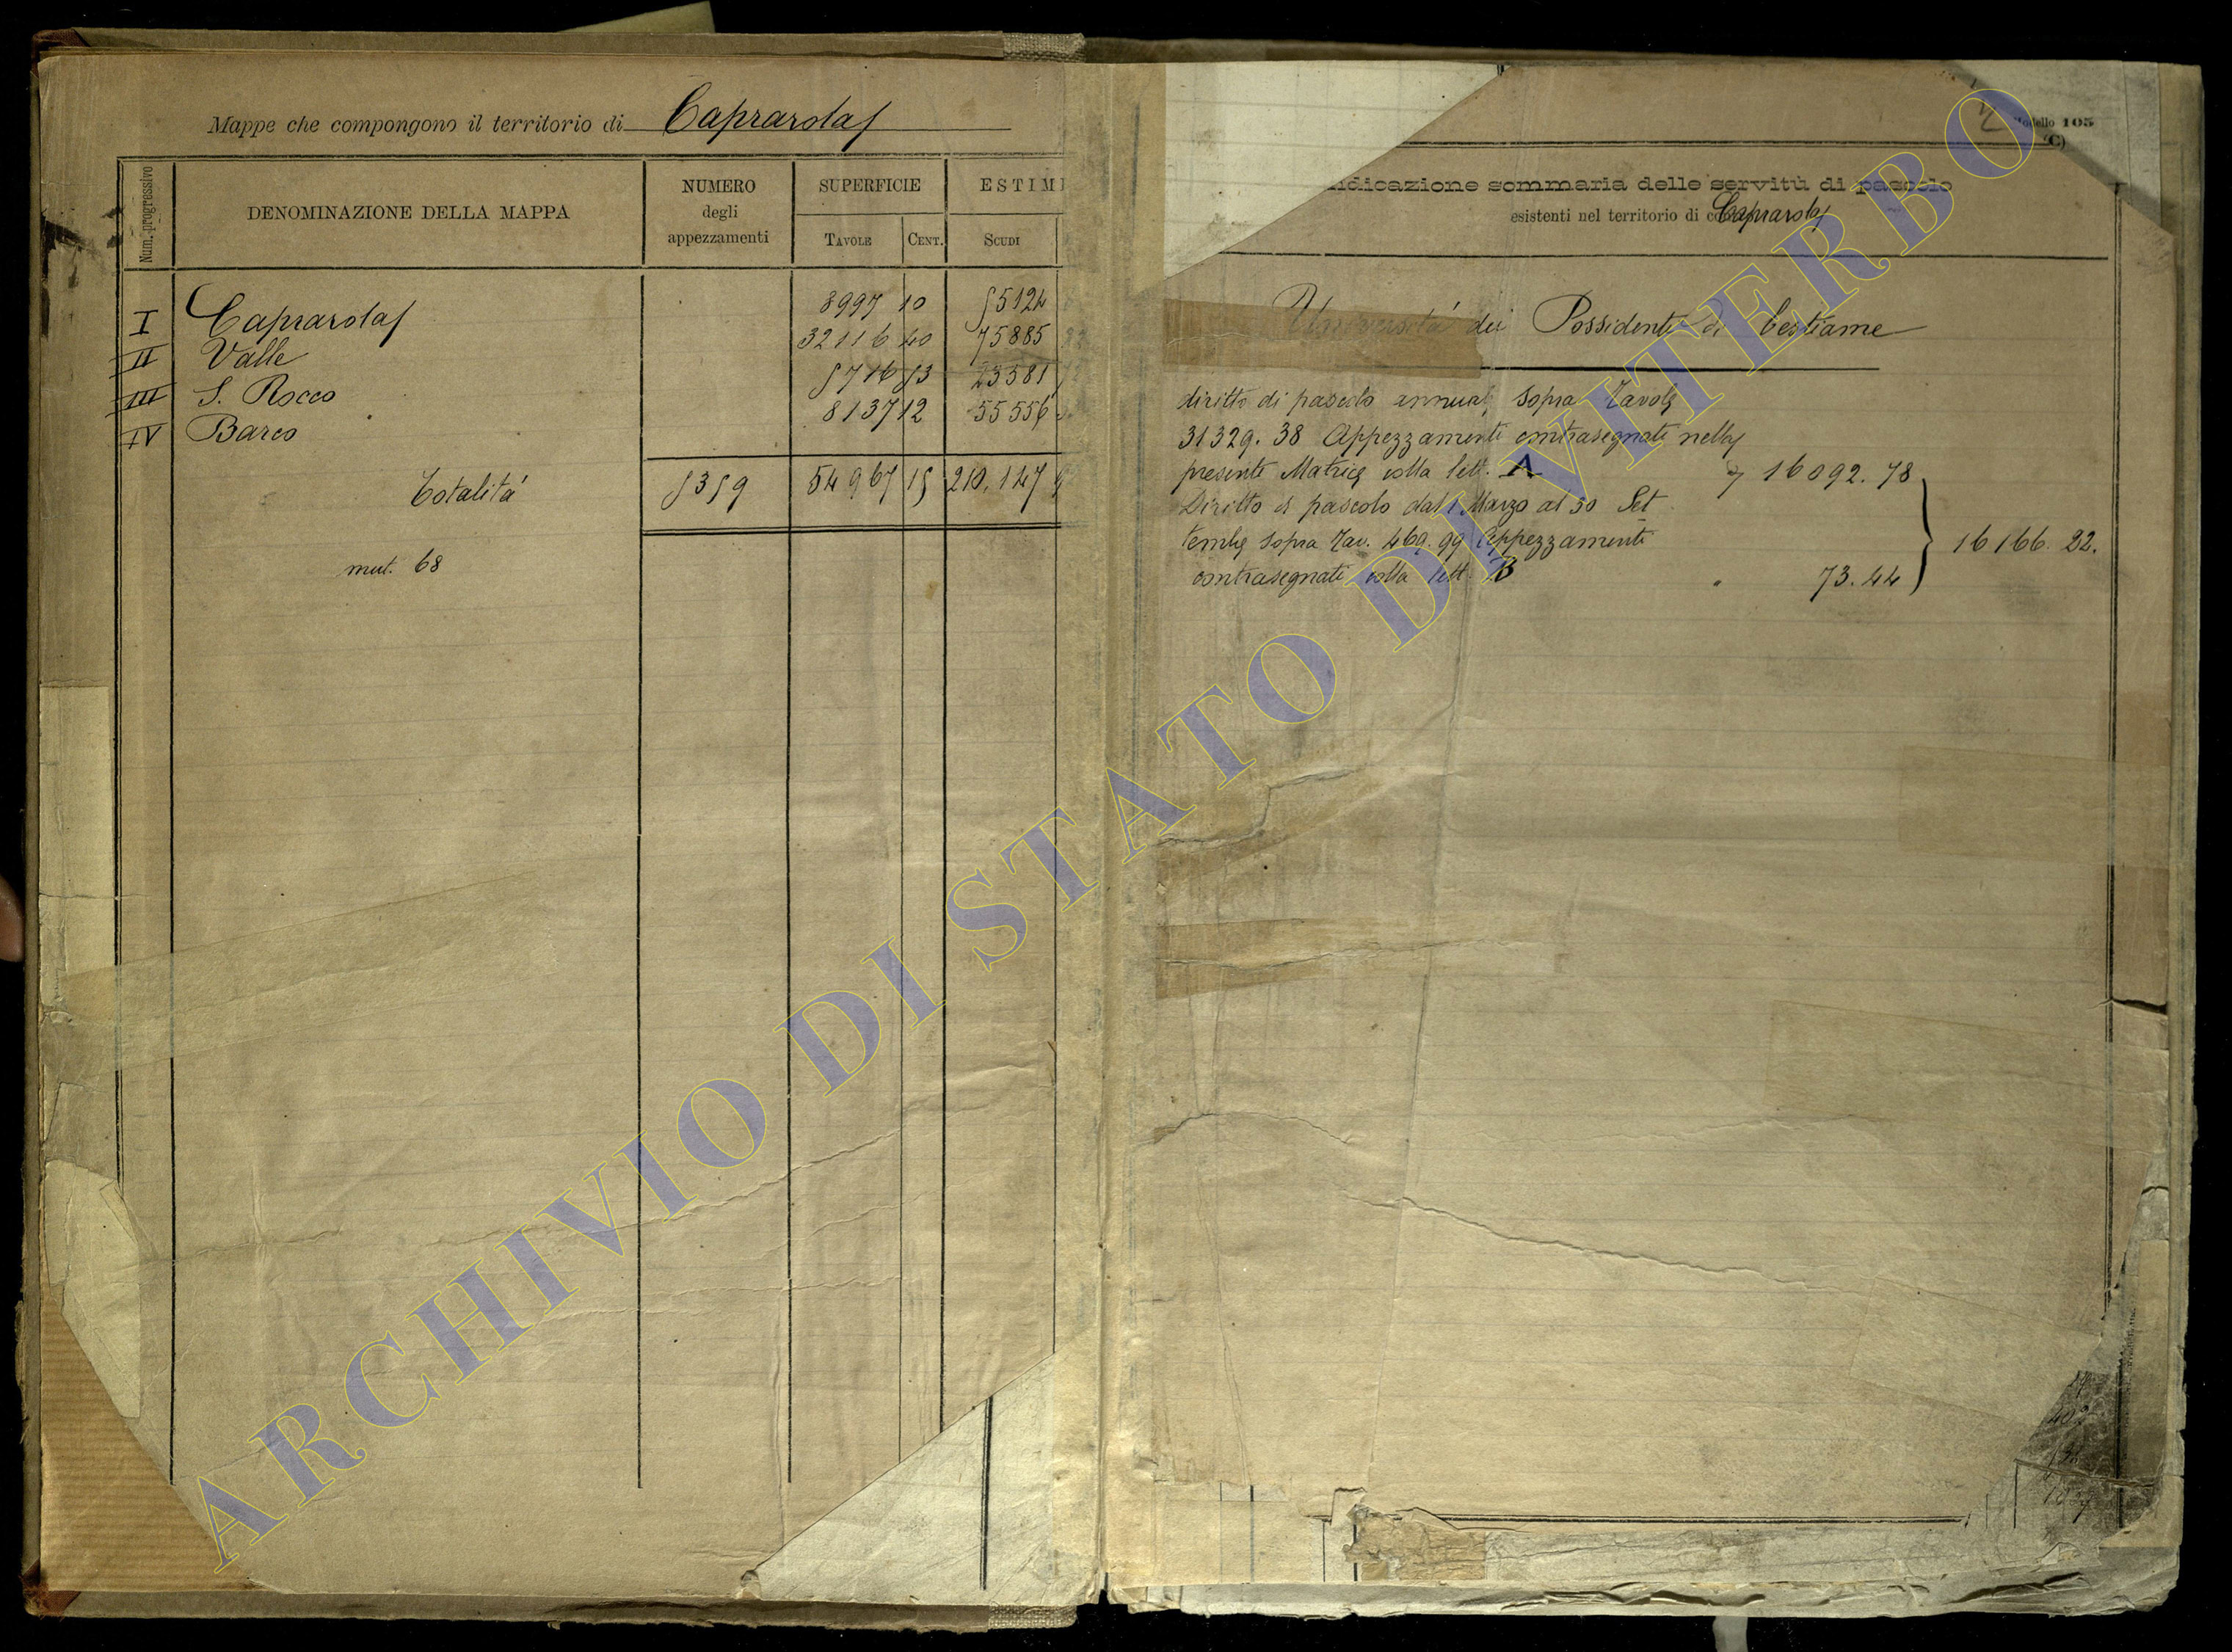 Mappe che compongono il territorio di Caprarola
Num. progressivo
DENOMINAZIONE DELLA MAPPA
NUMERO degli appezzamenti
SUPERFICIE
TAVOLE CENT.
ESTIM
SCUDI
I Caprarola 8997 10 55124
II Valle 32116 40 75885
III S. Rocco 5716 53 23581
IV Barco 8137 12 55556
Totalità 5359 54967 15 210,147
mut. 68
2
Modello 105
(C)
ndicazione sommaria delle servitù di pascolo
esistenti nel territorio di Caprarola
Università dei Possidenti di bestiame
diritto di pascolo annuale sopra Tavole
31329.38 Appezzamenti contrasegnati nella
presente Matrice colla lett. A 16092.78
Diritto di pascolo dal 1 Marzo al 30 Set
tembre sopra Tav. 469.99 Appezzamenti
16166.22.
contrasegnati colla lett. B " 73.44
ARCHIVIO DI STATO DI VITERBO